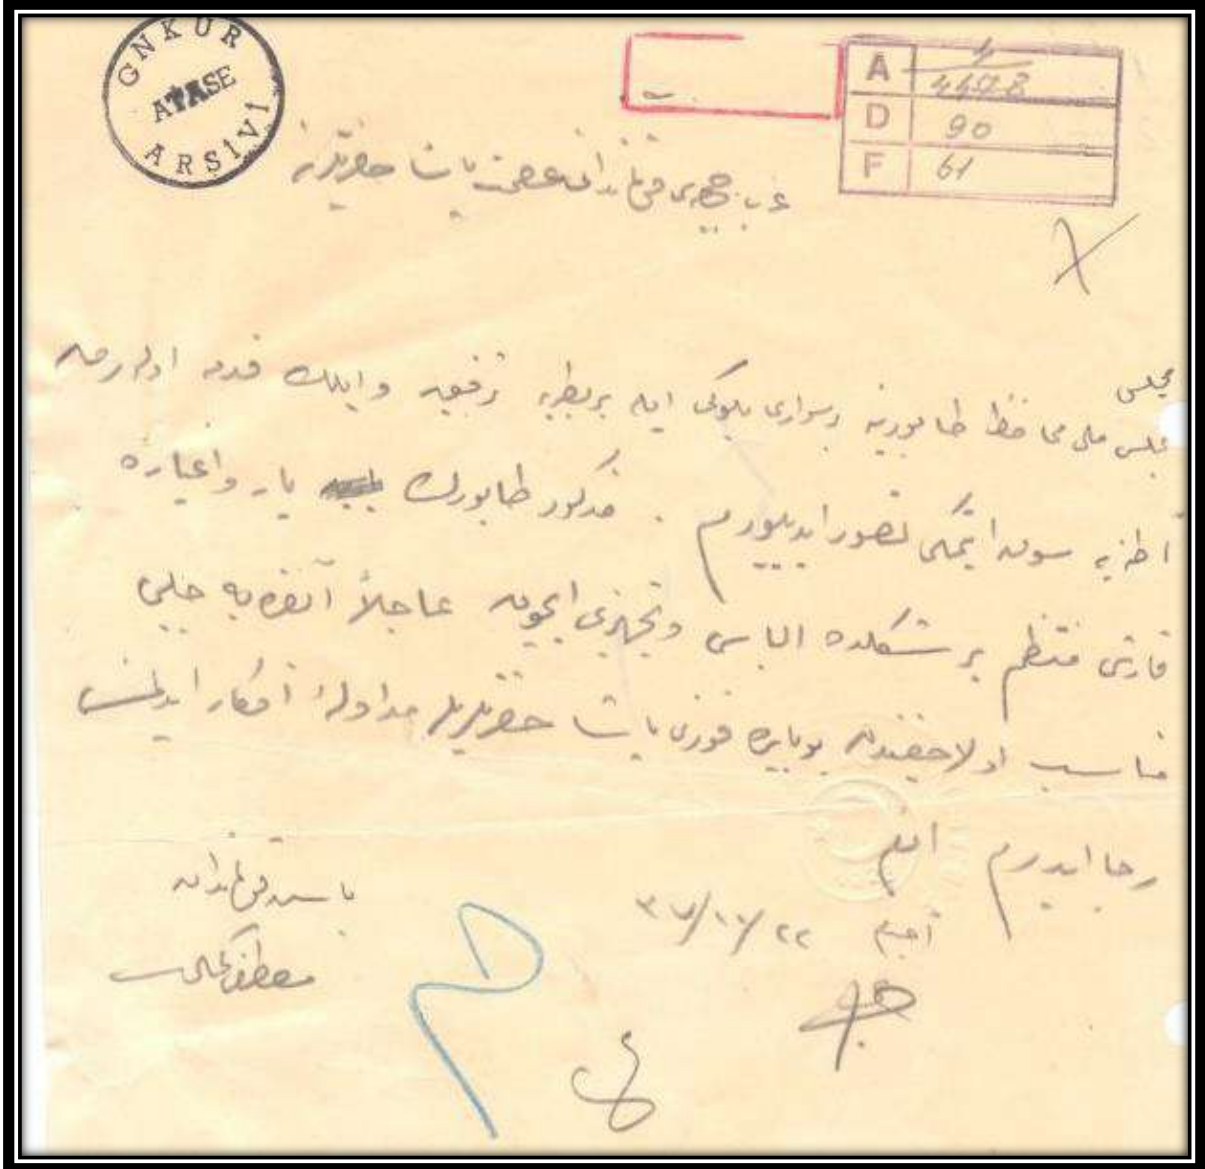 GNKUR
ATASE
ARŞİVİ
A 4478
D 90
F 61
غرب جبهه‌سی قوماندانی عصمت پاشا حضرتلرینه
مجلس
مجلس ملی محافظ طابورینه سواری بلوکی ایله ترفیق و ایلك اوله‌رق
سوق ایتمکی تصور ایدییورم . مذکور طابورك یار و اغیاره
قارشی منتظم بر شکلده الباس و تجهیزی ایچون عاجلاً آنقره‌یه جلبی
مناسب اولاجغندن بوبابده فوزی پاشا حضرتلریله مداولهٔ افکار ایدلمسنی
رجا ایدرم افندم
٣٧/١١/٢٢
باشقوماندان
مصطفی کمال